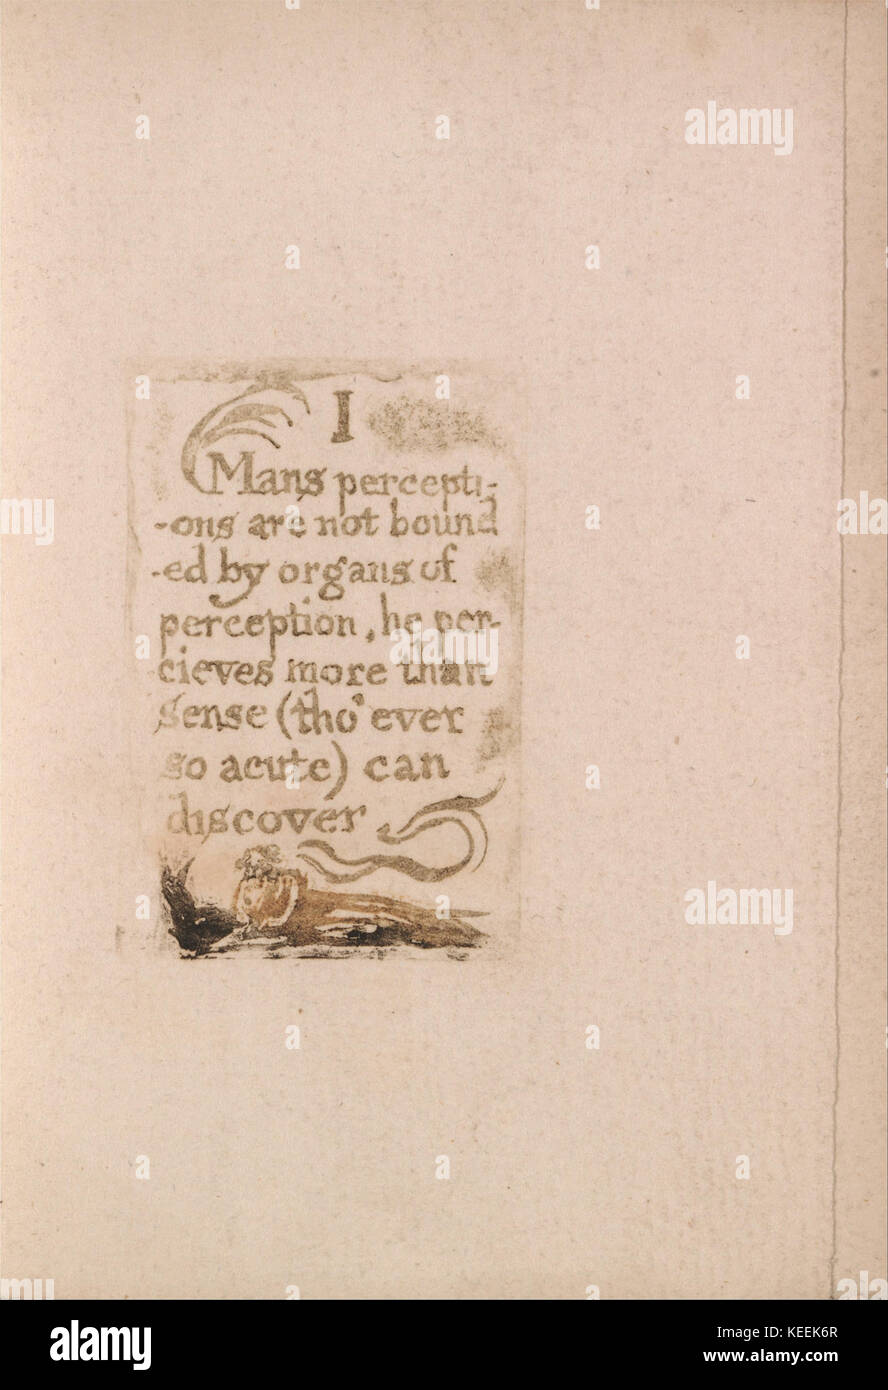 I
Mans percepti-
-ons are not bound
-ed by organs of
perception, he per-
cieves more than
sense (tho' ever
so acute) can
discover
alamy
Image ID: KEEK6R
www.alamy.com